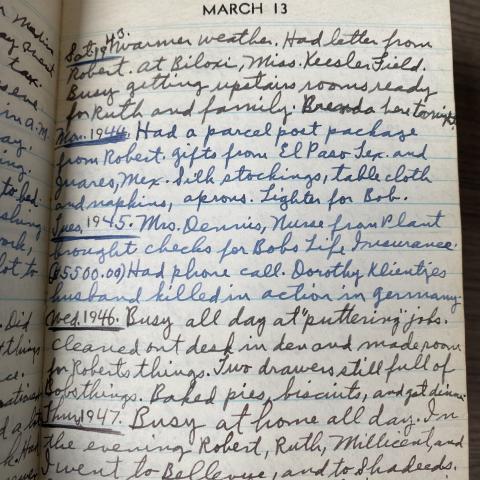 MARCH 13
Sat. 1943. Warmer weather. Had letter from
Robert. at Biloxi, Miss. Keesler Field.
Busy getting upstairs rooms ready
for Ruth and family. Brenda here tonight.
Mon. 1944. Had a parcel post package
from Robert. gifts from El Paso Tex. and
Juares, Mex. Silk stockings, table cloth
and napkins, aprons. Lighter for Bob.
Tues, 1945. Mrs. Dennis, Nurse from Plant
brought checks for Bobs Life Insurance.
($5500.00) Had phone call. Dorothy Klientjes
husband killed in action in germany.
Wed. 1946. Busy all day at "puttering" jobs.
cleaned out desk in den and made room
for Roberts things. Two drawers still full of
Bobs things. Baked pies, biscuits, and get dinner
Thur, 1947. Busy at home all day. In
the evening Robert, Ruth, Millicent, and
I went to Bellevue, and to Shadeeds.